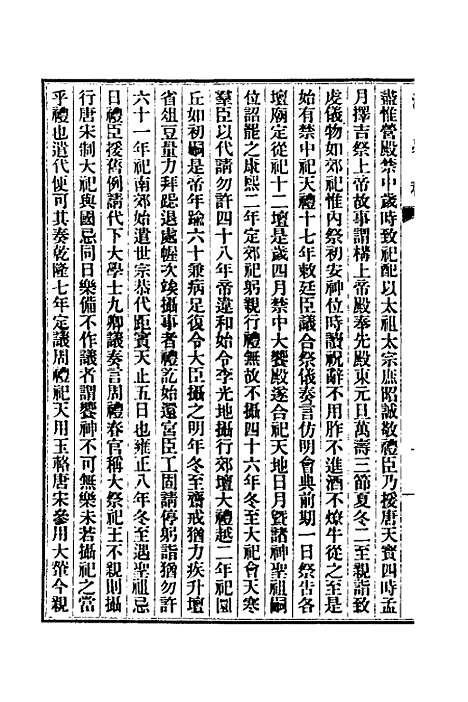 盡惟營殿禁中歲時致祀配以太祖太宗庶昭誠敬禮臣乃援唐天寶四時孟
月擇吉祭上帝故事謂構上帝殿奉先殿東元旦萬壽三節夏冬二至親詣致
虔儀物如郊祀惟內祭初安神位時讀祝辭不用胙不進酒不燎牛從之至是
始有禁中祀天禮十七年敕廷臣議合祭儀奏言仿明會典前期一日祭告各
壇廟定從祀十二壇是歲四月禁中大饗殿遂合祀天地日月暨諸神聖祖嗣
位詔罷之康熙二年定郊祀躬親行禮無故不攝四十六年冬至大祀會天寒
羣臣以代請勿許四十八年帝違和始令李光地攝行郊壇大禮越二年祀圜
丘如初嗣是帝年踰六十兼病足復令大臣攝之明年冬至齋戒猶力疾升壇
省俎豆量力拜跪退處幄次竢攝事者禮訖始還宮臣工固請停躬詣猶勿許
六十一年祀南郊始遣世宗恭代距賓天止五日也雍正八年冬至遇聖祖忌
日禮臣援舊例請代下大學士九卿議奏言周禮春官稱大祭祀王不親則攝
行唐宋制大祀與國忌同日樂備不作議者謂饗神不可無樂未若攝祀之當
乎禮也遣代便可其奏乾隆七年定議周禮祀天用玉輅唐宋參用大輦今親